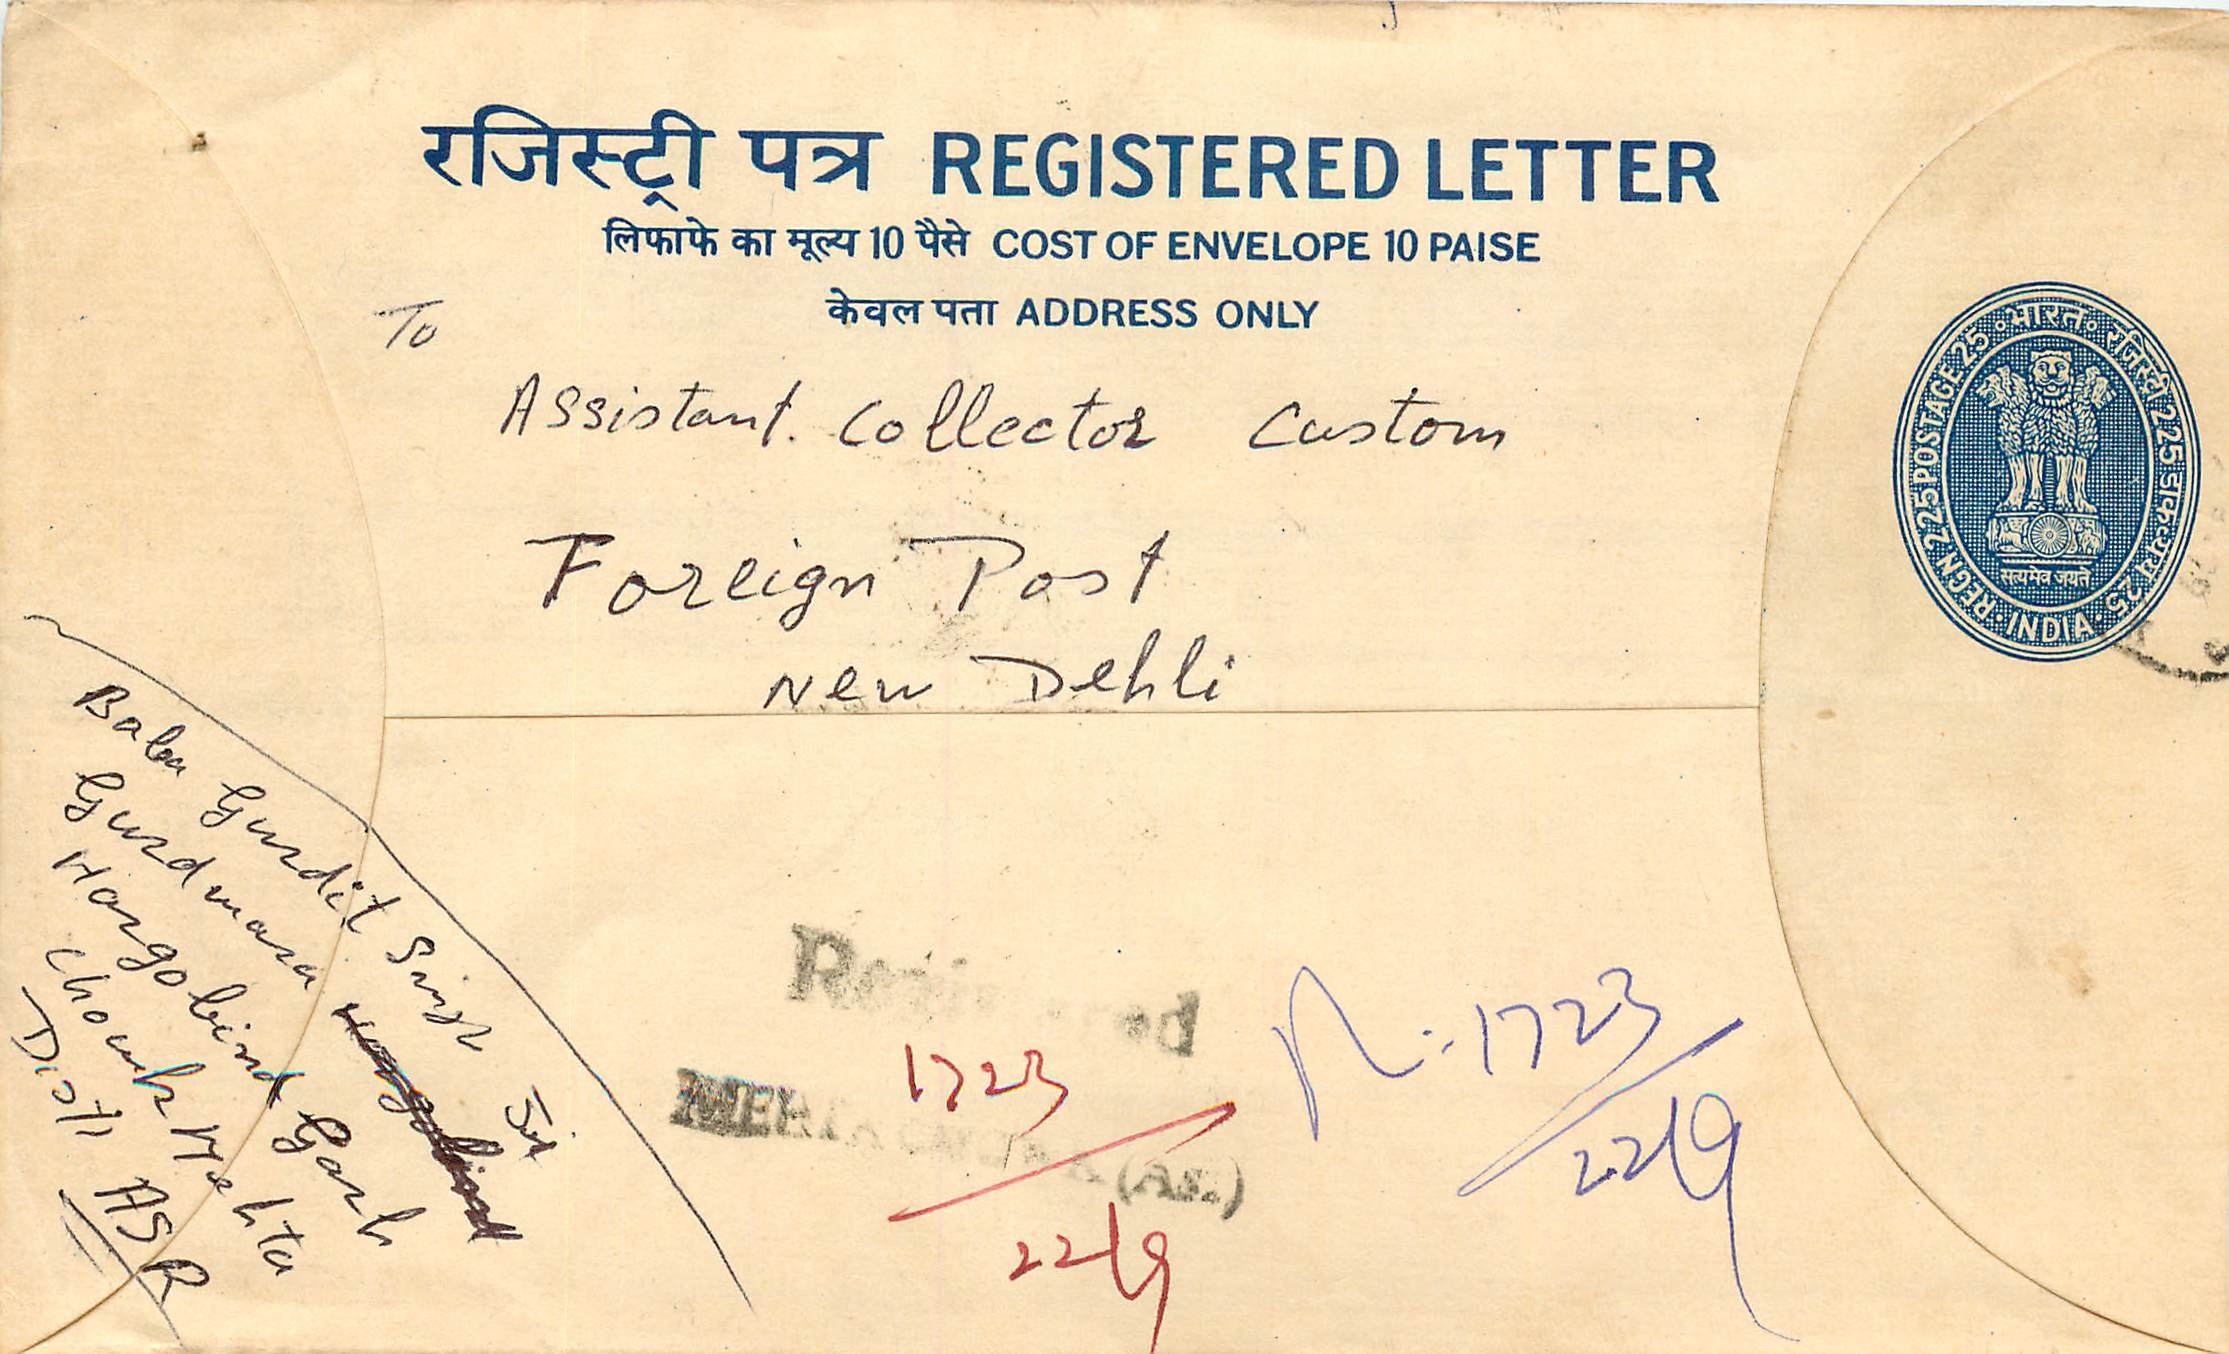 रजिस्ट्री पत्र REGISTERED LETTER
लिफाफे का मूल्य 10 पैसे COST OF ENVELOPE 10 PAISE
केवल पता ADDRESS ONLY
To
Assistant. Collector Custom
Foreign Post
New Dehli
भारत रजिस्ट्री 225 डाकद्रव्य 25
REGN. 225 POSTAGE 25
सत्यमेव जयते
INDIA
Baba Gurdit Singh
Gurdwara Sri
Hargobind Garh
Chowk Mehta
Distt ASR
Registered
MEHTA (AS.)
1723
22/9
N:-1723
22/9